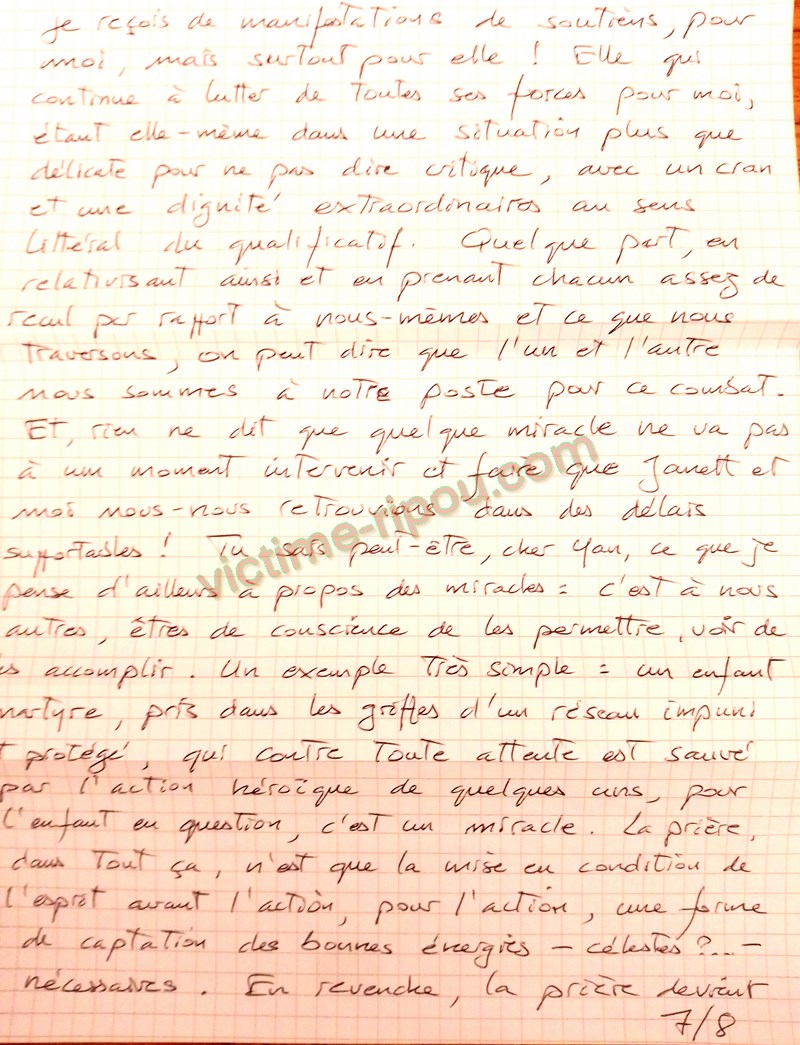 je reçois de manifestations de soutiens, pour
moi, mais surtout pour elle ! Elle qui
continue à lutter de toutes ses forces pour moi,
étant elle-même dans une situation plus que
délicate pour ne pas dire critique, avec un cran
et une dignité extraordinaires au sens
littéral du qualificatif. Quelque part, en
relativisant ainsi et en prenant chacun assez de
recul par rapport à nous-mêmes et ce que nous
traversons, on peut dire que l'un et l'autre
nous sommes à notre poste pour ce combat.
Et, rien ne dit que quelque miracle ne va pas
à um moment intervenir et faire que Janett et
moi nous-nous retrouvions dans des délais
supportables ! Tu sais peut-être, cher Yan, ce que je
pense d'ailleurs à propos des miracles = c'est à nous
autres, êtres de conscience de les permettre, voir de
es accomplir. Un exemple très simple = un enfant
martyre, pris dans les griffes d'un réseau impuni
t protégé, qui contre toute attente est sauvé
par l'action héroïque de quelques uns, pour
l'enfant en question, c'est un miracle. La prière,
dans tout ça, n'est que la mise en condition de
l'esprit avant l'action, pour l'action, une forme
de captation des bonnes énergies – célestes ?.. –
nécessaires. En revenche, la prière devient
7/8
victime-ripou.com